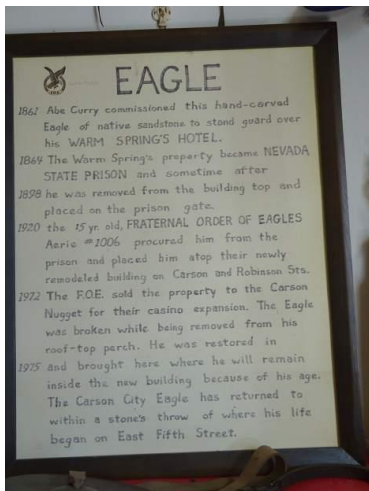 EAGLE
1861 Abe Curry commissioned this hand-carved
Eagle of native sandstone to stand guard over
his WARM SPRING'S HOTEL.
1864 The Warm Spring's property became NEVADA
STATE PRISON and sometime after
1898 he was removed from the building top and
placed on the prison gate.
1920 the 15 yr. old, FRATERNAL ORDER OF EAGLES
Aerie #1006 procured him from the
prison and placed him atop their newly
remodeled building on Carson and Robinson Sts.
1972 The F.O.E. sold the property to the Carson
Nugget for their casino expansion. The Eagle
was broken while being removed from his
roof-top perch. He was restored in
1975 and brought here where he will remain
inside the new building because of his age.
The Carson City Eagle has returned to
within a stone's throw of where his life
began on East Fifth Street.